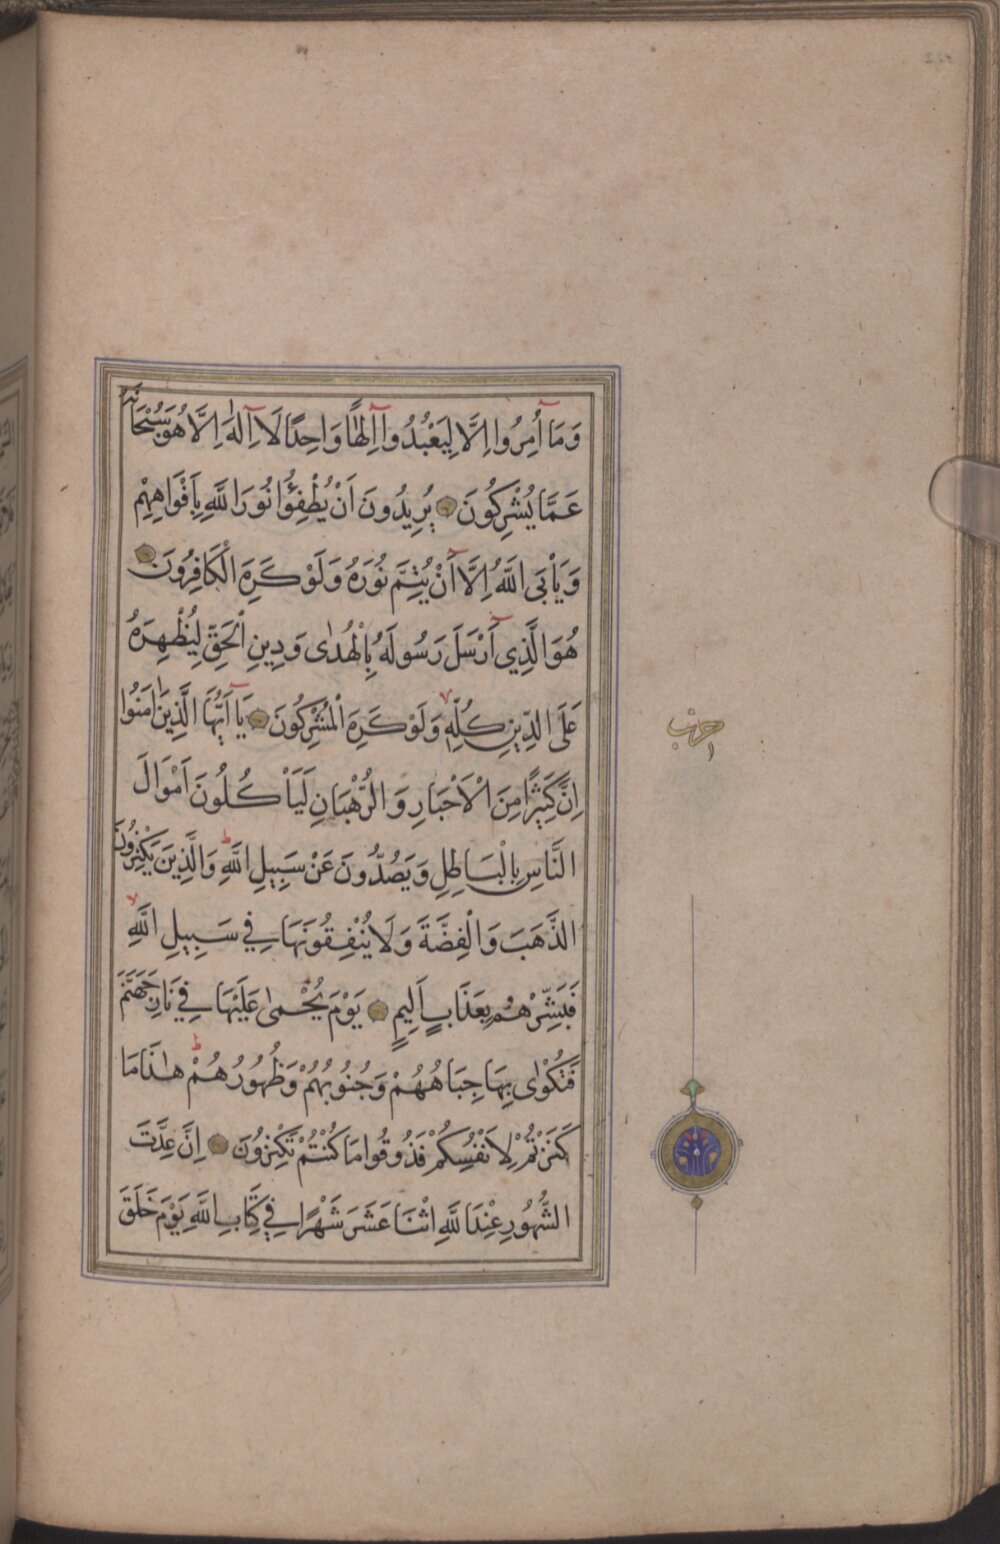 وَمَآ اُمِرُوا اِلَّا لِيَعْبُدُوآ اِلٰهًا وَاحِدًا لَآ اِلٰهَ اِلَّا هُوَ سُبْحَانَهُ
عَمَّا يُشْرِكُونَ يُرِيدُونَ اَنْ يُطْفِؤُا نُورَ اللَّهِ بِاَفْوَاهِهِمْ
وَيَاْبَى اللَّهُ اِلَّآ اَنْ يُتِمَّ نُورَهُ وَلَوْ كَرِهَ الْكَافِرُونَ
هُوَ الَّذِىٓ اَرْسَلَ رَسُولَهُ بِالْهُدٰى وَدِينِ الْحَقِّ لِيُظْهِرَهُ
عَلَى الدِّينِ كُلِّهِ وَلَوْ كَرِهَ الْمُشْرِكُونَ يَآ اَيُّهَا الَّذِينَ اٰمَنُوا
اِنَّ كَثِيرًا مِنَ الْاَحْبَارِ وَالرُّهْبَانِ لَيَاْكُلُونَ اَمْوَالَ
النَّاسِ بِالْبَاطِلِ وَيَصُدُّونَ عَنْ سَبِيلِ اللَّهِ ط وَالَّذِينَ يَكْنِزُونَ
الذَّهَبَ وَالْفِضَّةَ وَلَا يُنْفِقُونَهَا فِي سَبِيلِ اللَّهِ
فَبَشِّرْهُمْ بِعَذَابٍ اَلِيمٍ يَوْمَ يُحْمٰى عَلَيْهَا فِي نَارِ جَهَنَّمَ
فَتُكْوٰى بِهَا جِبَاهُهُمْ وَجُنُوبُهُمْ وَظُهُورُهُمْ ط هٰذَا مَا
كَنَزْتُمْ لِاَنْفُسِكُمْ فَذُوقُوا مَا كُنْتُمْ تَكْنِزُونَ اِنَّ عِدَّةَ
الشُّهُورِ عِنْدَ اللَّهِ اثْنَا عَشَرَ شَهْرًا فِي كِتَابِ اللَّهِ يَوْمَ خَلَقَ
حزب